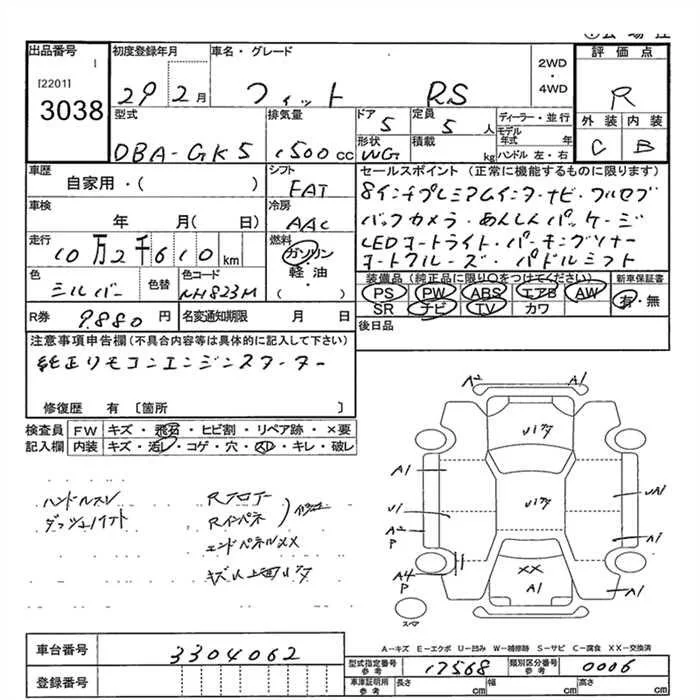 出品番号
[2201]
3038
初度登録年月
29 2月
車名・グレード
フィット RS
2WD
・
4WD
評価点
R
外装 内装
C B
型式
DBA-GK5
排気量
1500 cc
ドア
5
定員
5 人
形状
WG
積載
kg
ディーラー・並行
モデル年式 年
ハンドル 左・右
車歴
自家用・( )
シフト
FAT
車検
年 月( 日)
冷房
AAC
走行
10万2千610 km
燃料
ガソリン
・
軽油
・
( )
色
シルバー
色替
色コード
NH823M
R券
9.880 円
名変通知期限 月 日
セールスポイント (正常に機能するものに限ります)
8インチプレミアムインターナビ・フルセグ
バックカメラ・あんしんパッケージ
LEDヘッドライト・パーキングソナー
クルーズ・パドルシフト
装備品 (純正品に限り○をつけてください)
PS PW ABS エアB AW
SR ナビ TV カワ
新車保証書
有・無
後日品
注意事項申告欄 (不具合内容等は具体的に記入して下さい)
純正リモコンエンジンスターター
修復歴 有 〔箇所 〕
検査員
記入欄
FW キズ・飛石・ヒビ割・リペア跡・×要
内装 キズ・汚レ・コゲ・穴・スレ・キレ・破レ
ハンドルスレ
Rフロアー
Rインパネ
エンドパネルXX
A2
A1
A1
U1
A2
P
A4
P
UA1
A1
A1
XX
A1
スペア
A-キズ E-エクボ U-凹み W-補修跡 S-サビ C-腐食 XX-交換済
車台番号
3304062
登録番号
型式指定番号
参考
17568
類別区分番号
参考
0006
車庫証明用
参考
長さ cm
幅 cm
高さ cm